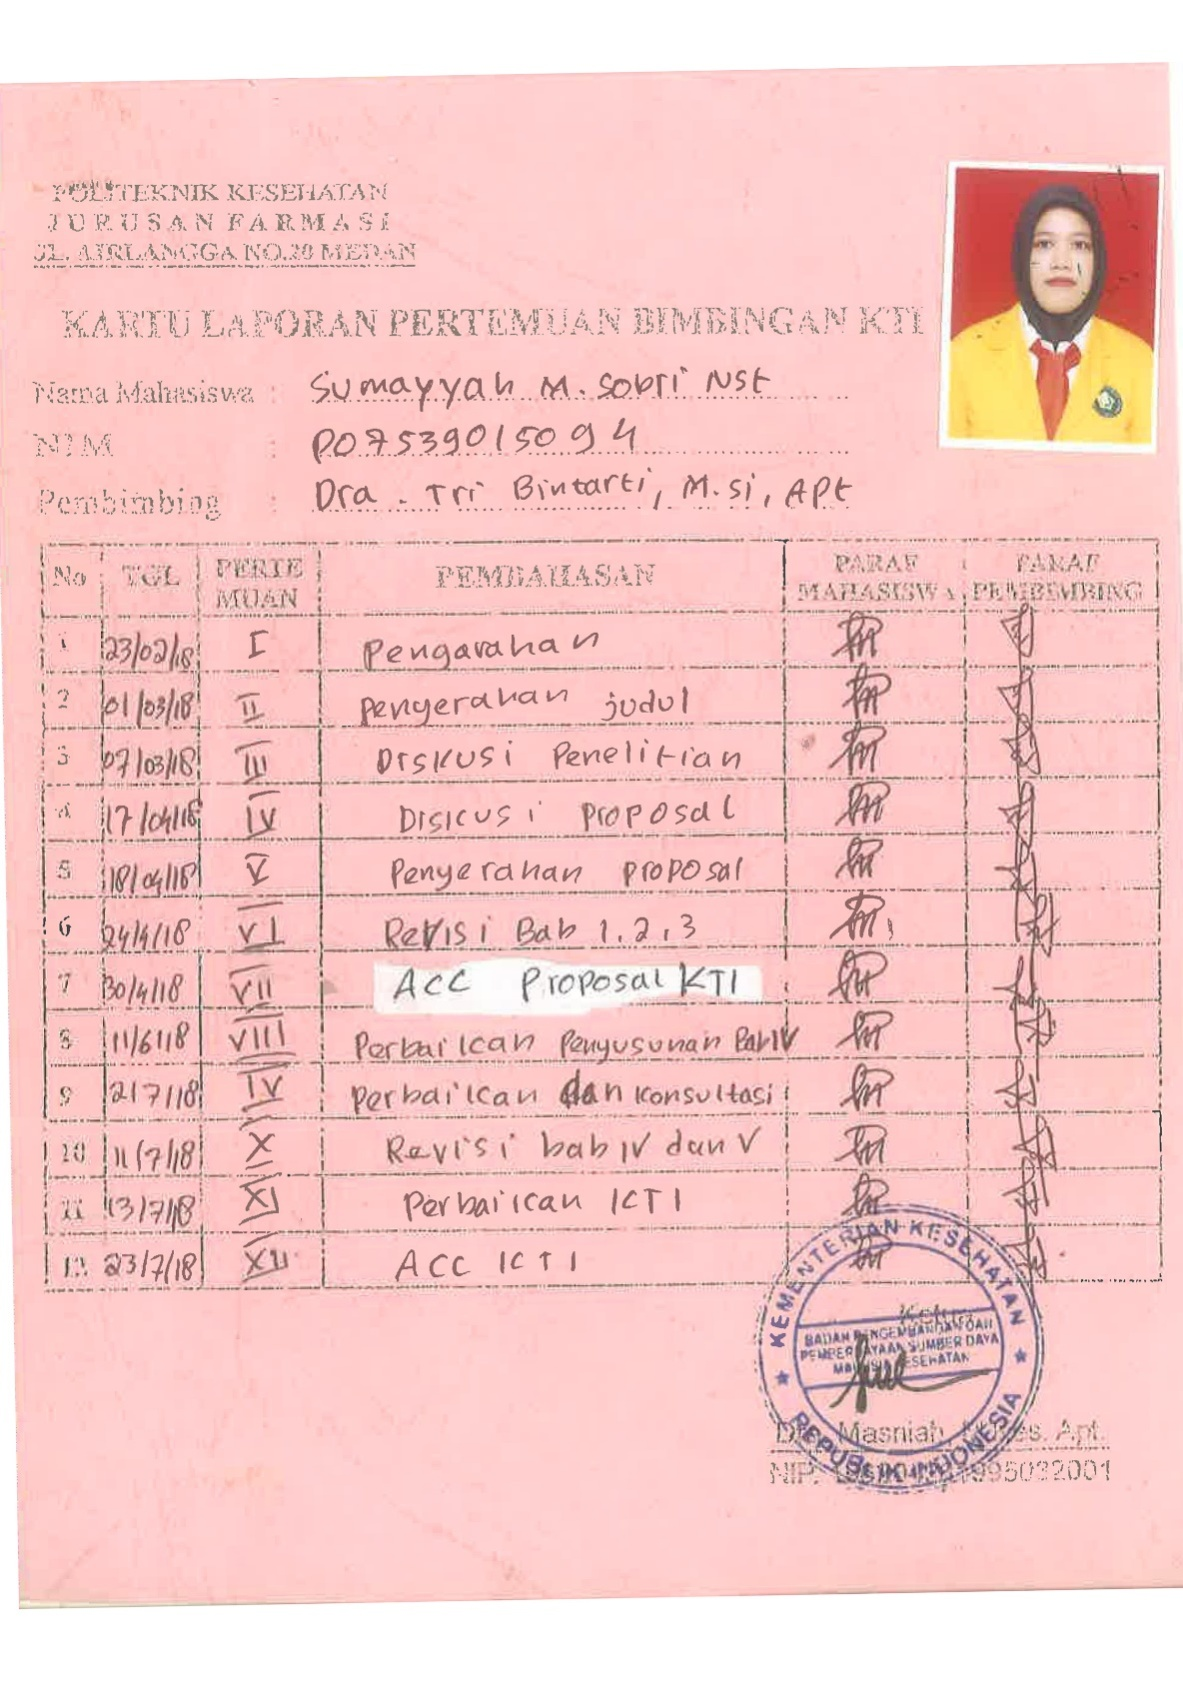 POLITEKNIK KESEHATAN
JURUSAN FARMASI
JL. AIRLANGGA NO.20 MEDAN
KARTU LAPORAN PERTEMUAN BIMBINGAN KTI
Nama Mahasiswa : Sumayyah M. Sobri Nst
NIM : P07539015094
Pembimbing : Dra . Tri Bintarti, M.Si, APt
No TGL PERTEMUAN PEMBAHASAN PARAF MAHASISWA PARAF PEMBIMBING
1 23/02/18 I Pengarahan
2 01/03/18 II Penyerahan judul
3 07/03/18 III Diskusi Penelitian
4 17/04/18 IV Diskusi proposal
5 18/04/18 V Penyerahan proposal
6 24/4/18 VI Revisi Bab 1,2,3
7 30/4/18 VII ACC Proposal KTI
8 11/6/18 VIII Perbaikan Penyusunan Bab IV
9 2/7/18 IV Perbaikan dan konsultasi
10 11/7/18 X Revisi bab IV dan V
11 13/7/18 XI Perbaikan KTI
12 23/7/18 XII ACC KTI
KEMENTERIAN KESEHATAN
Ketua
BADAN PENGEMBANGAN DAN
PEMBERDAYAAN SUMBER DAYA
MANUSIA KESEHATAN
REPUBLIK INDONESIA
Masniah, Apt.
NIP.